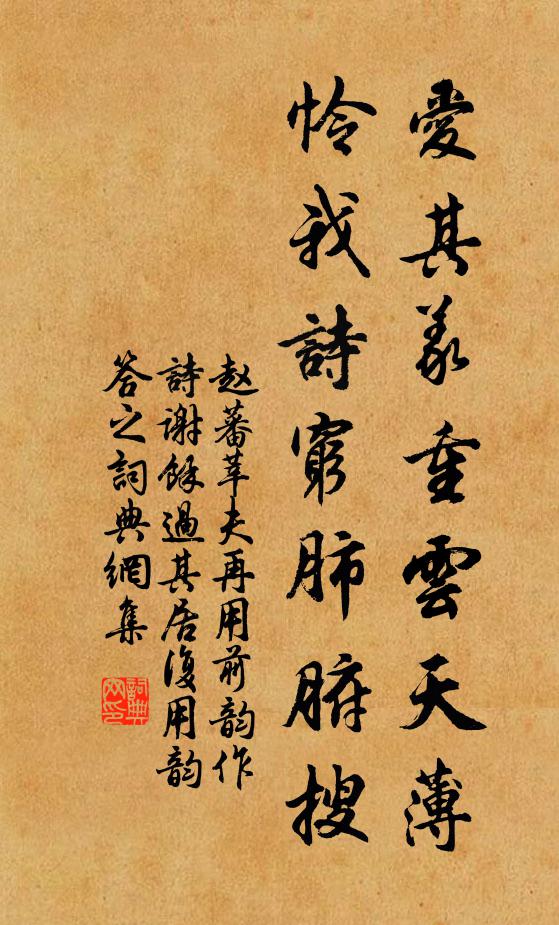 愛其義重雲天薄
憐我詩窮肺腑搜
赵蕃莘夫再用前韵作
詩謝餘過其居復用韵
答之詞典網集
詞典
网印